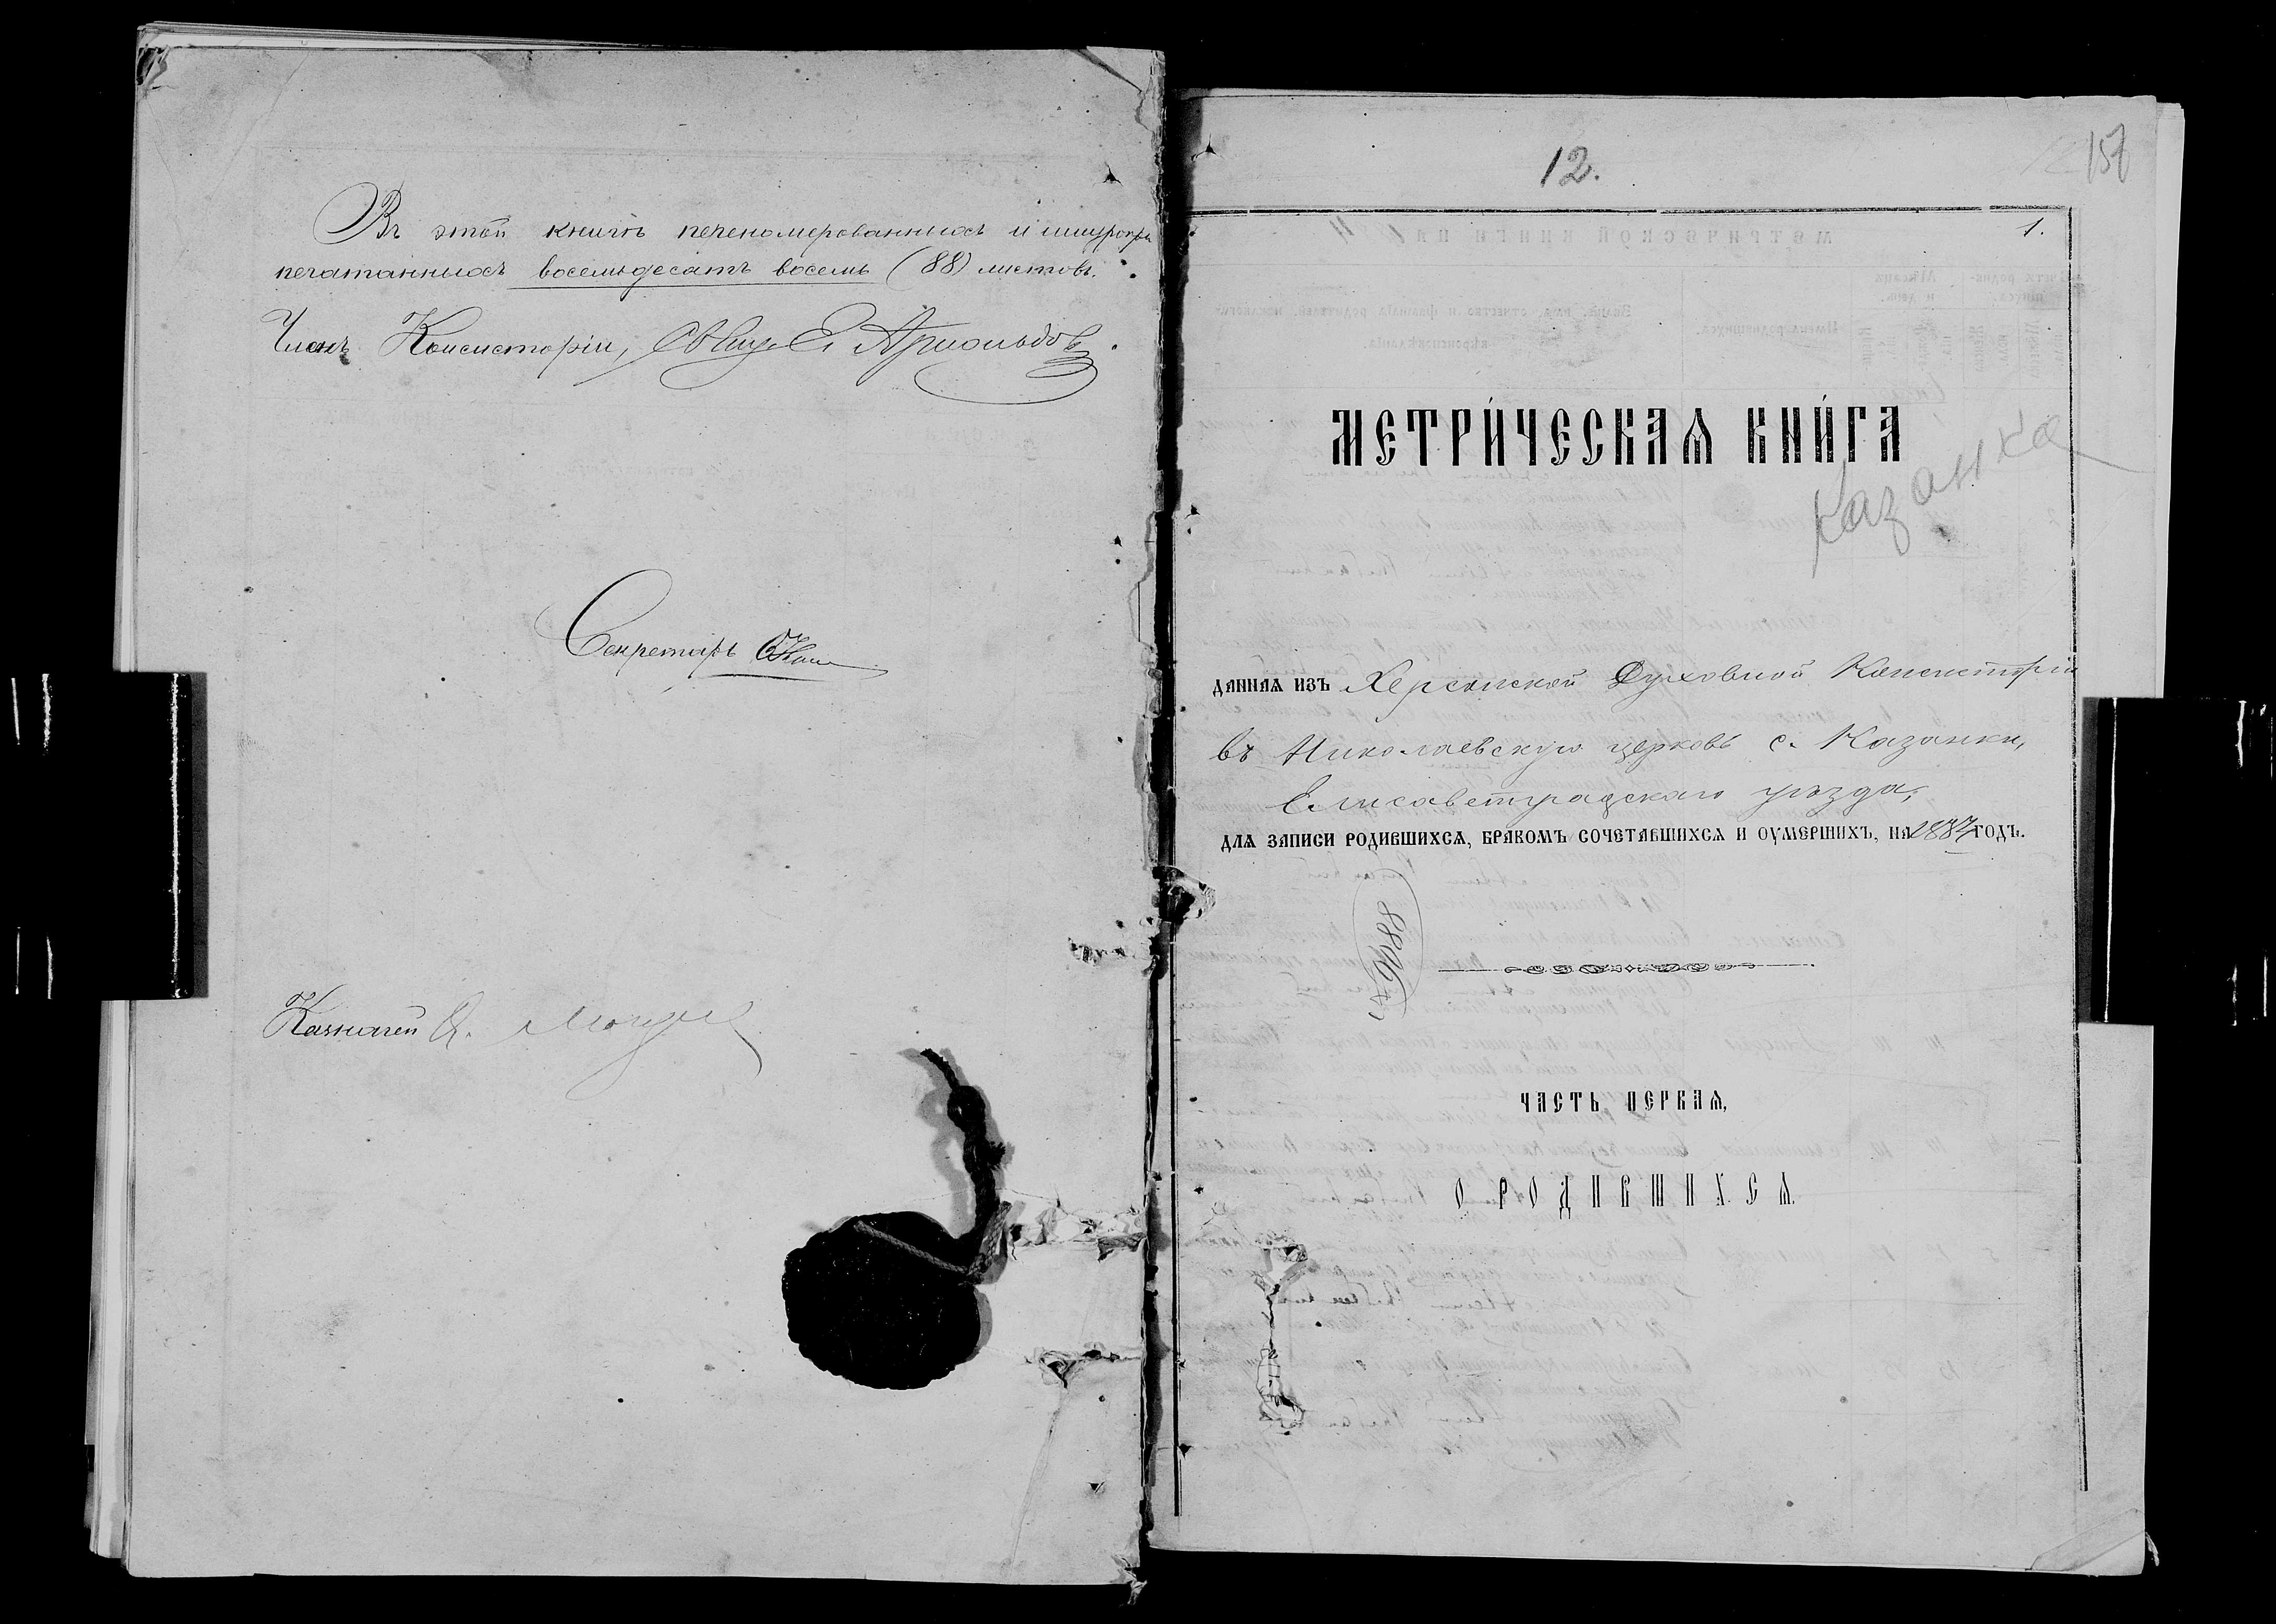 Въ этой книгѣ перенумерованныхъ и шнуропри
печатанныхъ восемьдесятъ восемь (88) листовъ.
Членъ Консисторіи, Свящ. Е. Арнольдовъ.
Секретарь
Казначей
12.
157
1.
МЕТРИ́ЧЕСКАѦ КНИ́ГА
Казанка
ДАННАѦ ИЗЪ Херсонской Духовной Консисторіи
въ Николаевскую церковь с. Казанки,
Елисаветградскаго уѣзда,
ДЛѦ ЗАПИСИ РОДИВШИХСѦ, БРАКОМЪ СОЧЕТАВШИХСѦ И ОУМЕРШИХЪ, НА 1884 ГОДЪ.
ЧАСТЬ ПЕРВАѦ,
О РОДИВШИХСѦ.